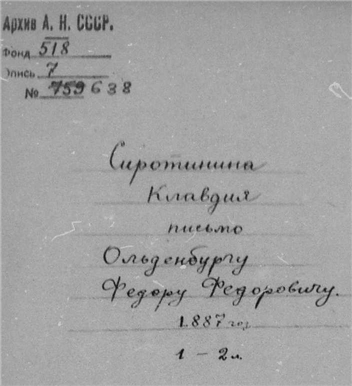 Архив А. Н. СССР.
Фонд 518
Опись 7
№ 759 638
Сиротинина
Клавдия
письмо
Ольденбургу
Федору Федоровичу.
1887 год
1 – 2 л.